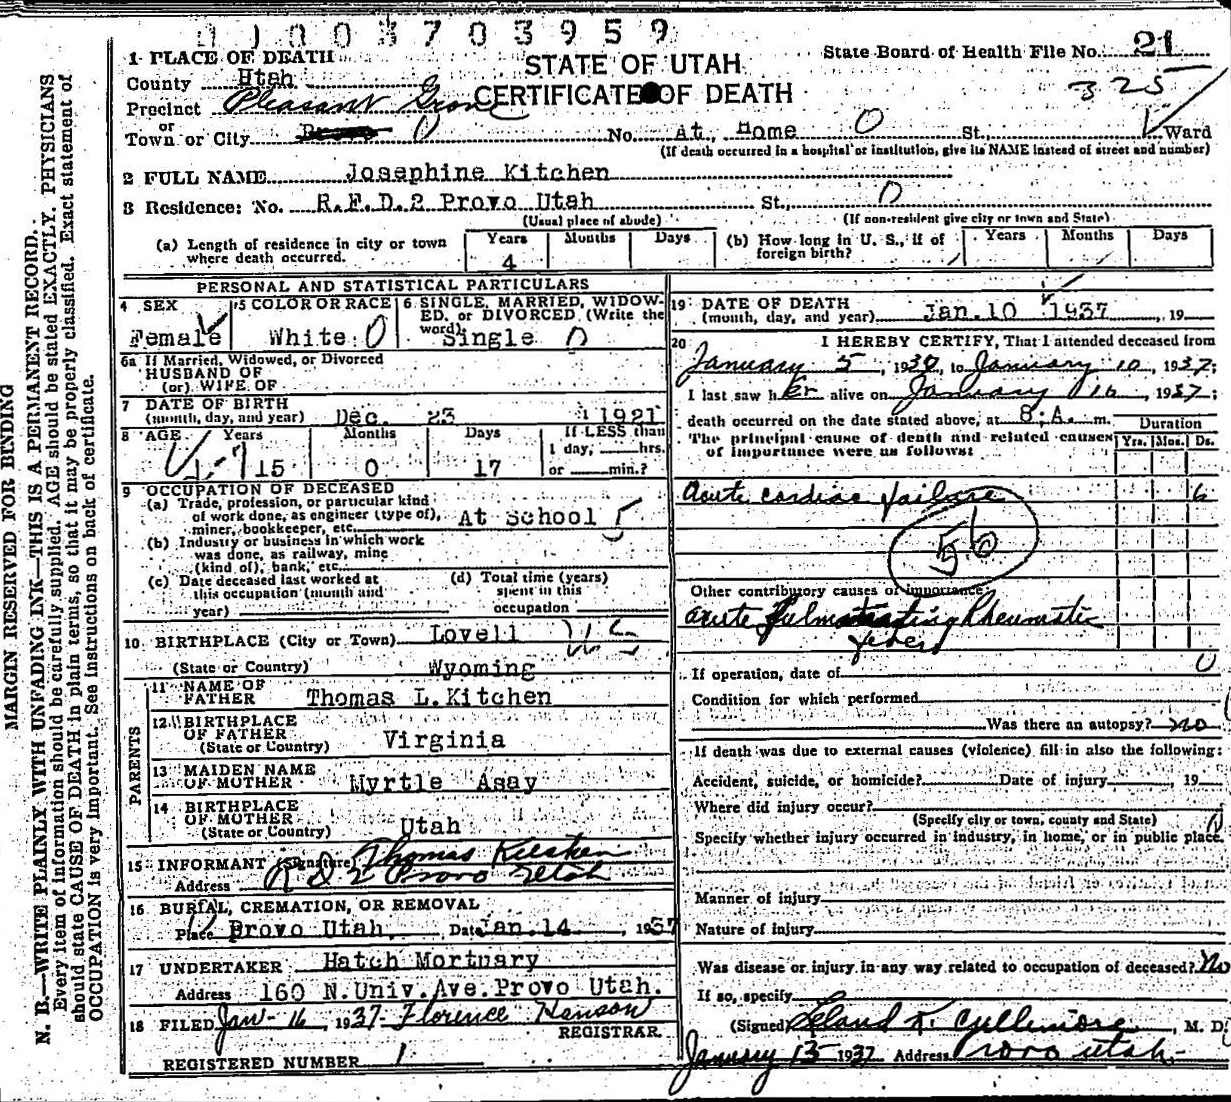 0 1 0 0 3 7 0 3 9 5 9
1 PLACE OF DEATH
STATE OF UTAH
CERTIFICATE OF DEATH
State Board of Health File No. 21
325
County Utah
Precinct Pleasant Grove
or
Town or City Provo 0 No. At Home 0 St., Ward
(If death occurred in a hospital or institution, give its NAME instead of street and number)
2 FULL NAME Josephine Kitchen
3 Residence: No. R.F.D.2 Provo Utah St., 0
(Usual place of abode) (If non-resident give city or town and State)
(a) Length of residence in city or town where death occurred. Years 4 Months Days
(b) How long in U. S., if of foreign birth? Years Months Days
PERSONAL AND STATISTICAL PARTICULARS
4 SEX Female
5 COLOR OR RACE White 0
6 SINGLE, MARRIED, WIDOWED, or DIVORCED (Write the word) Single 0
6a If Married, Widowed, or Divorced
HUSBAND OF
(or) WIFE OF
7 DATE OF BIRTH
(month, day, and year) Dec. 23 1921
8 AGE Years 15 Months 0 Days 17 If LESS than 1 day, hrs. or min.?
9 OCCUPATION OF DECEASED
(a) Trade, profession, or particular kind
of work done, as engineer (type of),
miner, bookkeeper, etc. At School 5
(b) Industry or business in which work
was done, as railway, mine
(kind of), bank, etc.
(c) Date deceased last worked at
this occupation (month and
year)
(d) Total time (years)
spent in this
occupation
10 BIRTHPLACE (City or Town) Lovell
(State or Country) Wyoming
PARENTS
11 NAME OF FATHER Thomas L. Kitchen
12 BIRTHPLACE OF FATHER
(State or Country) Virginia
13 MAIDEN NAME OF MOTHER Myrtle Asay
14 BIRTHPLACE OF MOTHER
(State or Country) Utah
15 INFORMANT (Signature) Thomas Kitchen
Address R D 2 Provo Utah
16 BURIAL, CREMATION, OR REMOVAL
Place Provo Utah Date Jan. 14, 1937
17 UNDERTAKER Hatch Mortuary
Address 160 N.Univ.Ave.Provo Utah.
18 FILED Jan- 16, 1937- Florence Hanson
REGISTRAR
REGISTERED NUMBER 1
19 DATE OF DEATH
(month, day, and year) Jan.10 1937, 19
20 I HEREBY CERTIFY, That I attended deceased from
January 5, 1937, to January 10, 1937;
I last saw her alive on January 10, 1937;
death occurred on the date stated above, at 8:A. m.
The principal cause of death and related causes
of importance were as follows:
Duration
Yrs. Mos. Ds.
Acute cardiac failure 6
56
Other contributory causes of importance:
acute Fulminating Rheumatic
fever
If operation, date of 0
Condition for which performed
Was there an autopsy? no
If death was due to external causes (violence) fill in also the following:
Accident, suicide, or homicide? Date of injury 19
Where did injury occur?
(Specify city or town, county and State)
Specify whether injury occurred in industry, in home, or in public place.
Manner of injury
Nature of injury
Was disease or injury in any way related to occupation of deceased? No
If so, specify
(Signed) Leland K. Cullimore, M. D.
January 13 1937 Address Provo Utah-
MARGIN RESERVED FOR BINDING
N. B.—WRITE PLAINLY WITH UNFADING INK—THIS IS A PERMANENT RECORD.
Every item of information should be carefully supplied. AGE should be stated EXACTLY. PHYSICIANS
should state CAUSE OF DEATH in plain terms, so that it may be properly classified. Exact statement of
OCCUPATION is very important. See instructions on back of certificate.